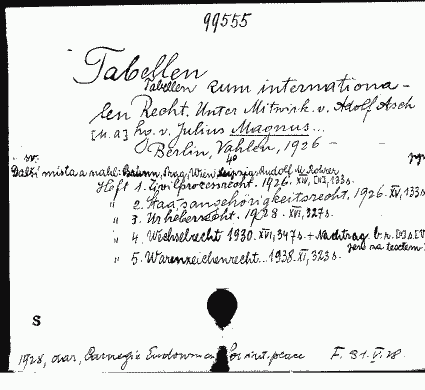 99555
Tabellen
Tabellen zum internationa-
len Recht. Unter Mitwirk. v. Adolf Asch
[u.a] hg. v. Julius Magnus...
Berlin, Vahlen, 1926 -
sv. 4°
Další místa a nakl: Brünn, Prag, Wien, Leipzig, Rudolf M. Rohrer
Heft 1. Civilprozessrecht. 1926. XIV, [IV], 133s.
" 2. Staatsangehörigkeitsrecht. 1926. XV, 133s.
" 3. Urheberrecht. 1928. XVI, 327s.
" 4. Wechselrecht 1930. XVI, 347s. + Nachtrag b.r.
" 5. Warenzeichenrecht... 1938. XI, 323s.
S
1928, dar, Carnegie Endowment for int. peace F. 31.V.28.